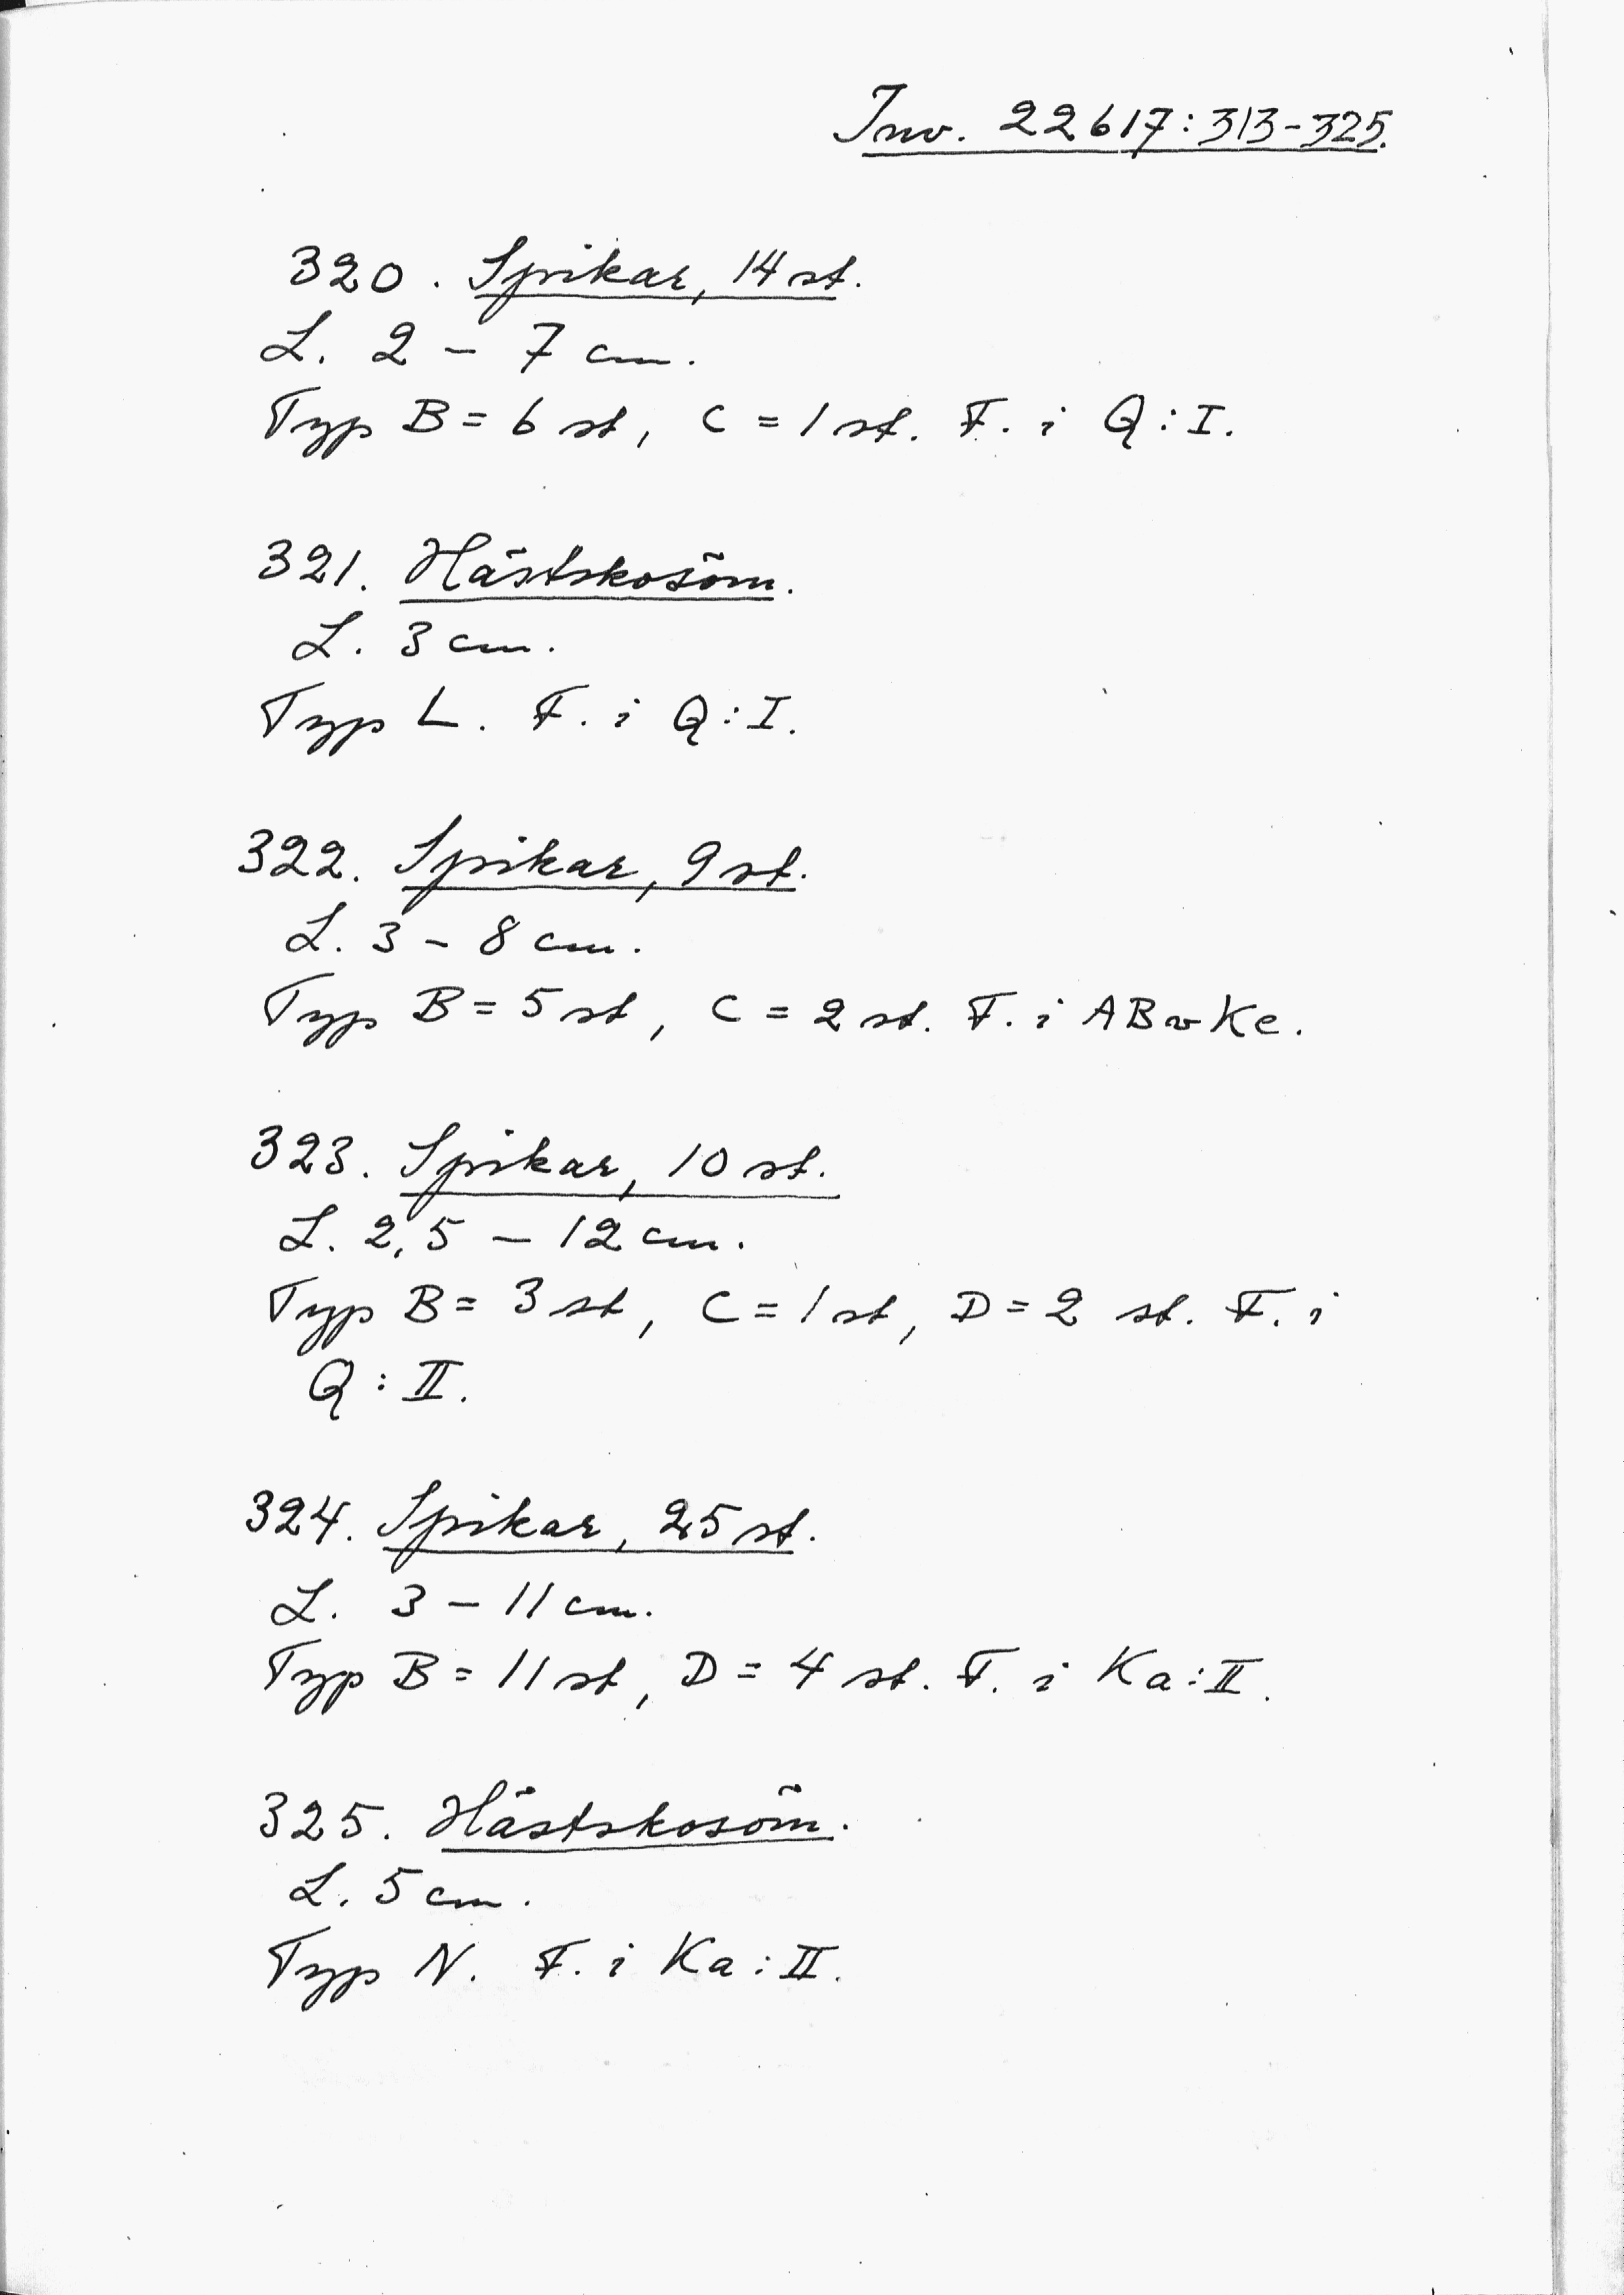 Inv. 22617:313-325.
320. Spikar, 14 st.
L. 2 - 7 cm.
Typ B = 6 st, C = 1 st. F. i Q:I.
321. Hästskosöm.
L. 3 cm.
Typ L. F. i Q:I.
322. Spikar, 9 st.
L. 3 - 8 cm.
Typ B = 5 st, C = 2 st. F. i ABvKe.
323. Spikar, 10 st.
L. 2,5 - 12 cm.
Typ B = 3 st, C = 1 st, D = 2 st. F. i
Q:II.
324. Spikar, 25 st.
L. 3 - 11 cm.
Typ B = 11 st, D = 4 st. F. i Ka:II.
325. Hästskosöm.
L. 5 cm.
Typ N. F. i Ka:II.